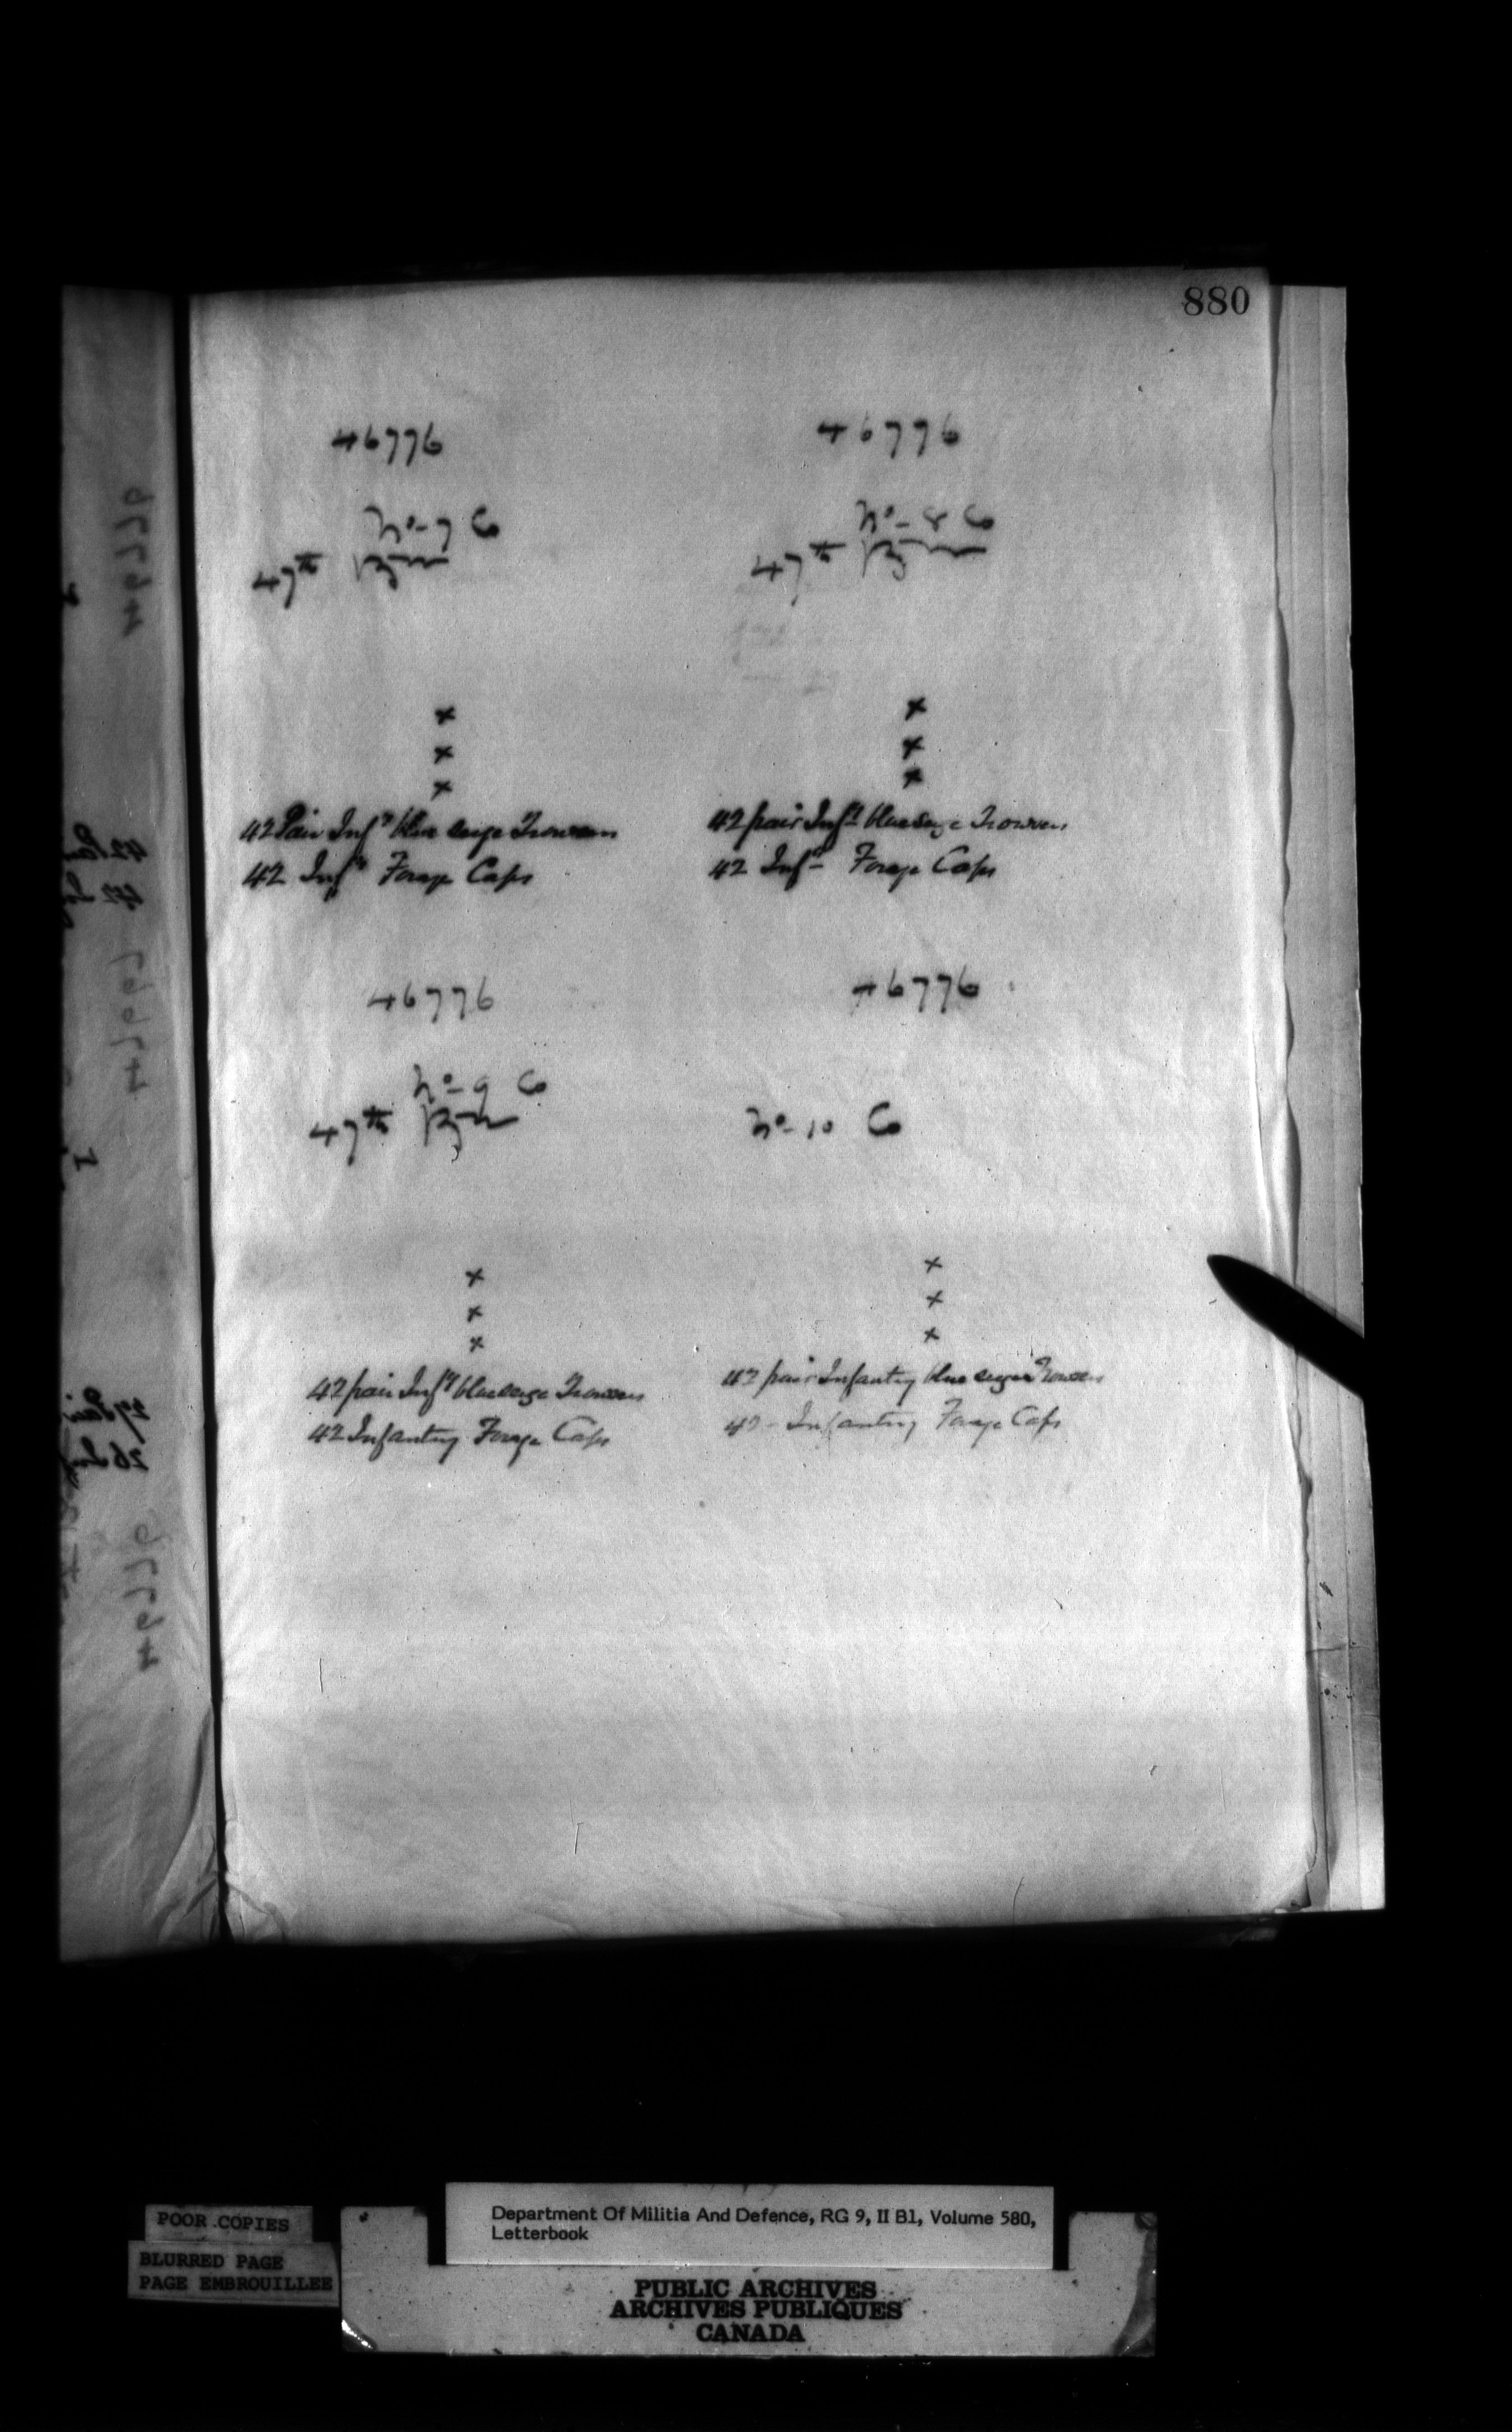 880
46776
No- 7 Co
47th Bn
x
x
x
42 Pair Infy blue serge Trowsers
42 Infy Forage Caps
46776
No- 8 Co
47th Bn
x
x
x
42 pair Infy blue serge Trowsers
42 Infy Forage Caps
46776
No- 9 Co
47th Bn
x
x
x
42 pair Infy blue serge Trowsers
42 Infantry Forage Caps
46776
No- 10 Co
x
x
x
42 pair Infantry blue serge Trowsers
42 - Infantry Forage Caps
POOR COPIES
BLURRED PAGE
PAGE EMBROUILLEE
Department Of Militia And Defence, RG 9, II B1, Volume 580,
Letterbook
PUBLIC ARCHIVES
ARCHIVES PUBLIQUES
CANADA